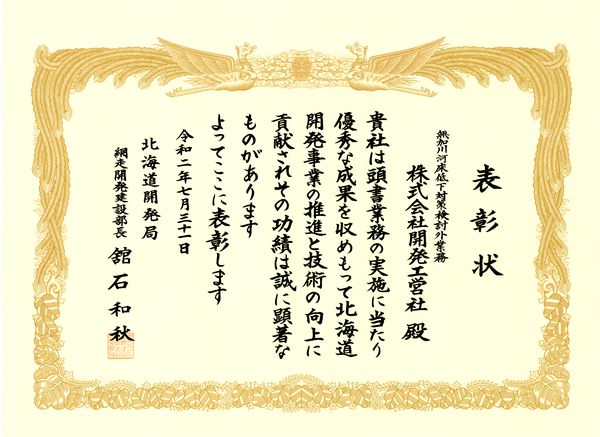 表彰状
無加川河床低下対策検討外業務
株式会社開発工営社 殿
貴社は頭書業務の実施に当たり
優秀な成果を収めもって北海道
開発事業の推進と技術の向上に
貢献されその功績は誠に顕著な
ものがあります
よってここに表彰します
令和二年七月三十一日
北海道開発局
網走開発建設部長 舘石和秋